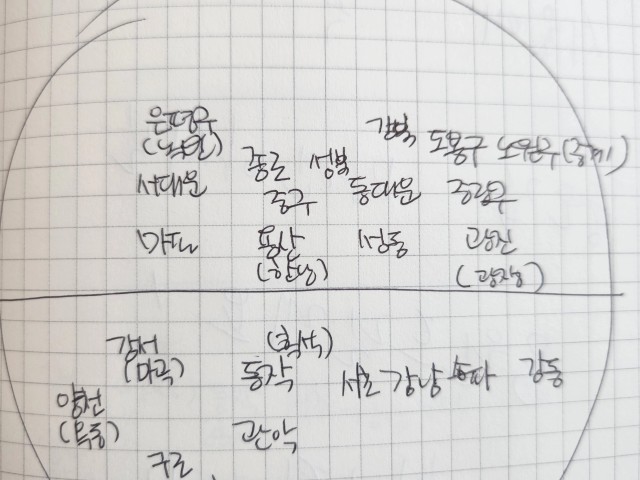 은평구
(녹번)
강북 도봉구 노원구(중계)
종로 성북
서대문
중구 동대문 중랑구
마포 용산 성동 광진
(한남) (광장동)
강서 (흑석)
(마곡) 동작 서초 강남 송파 강동
양천
(목동) 관악
구로